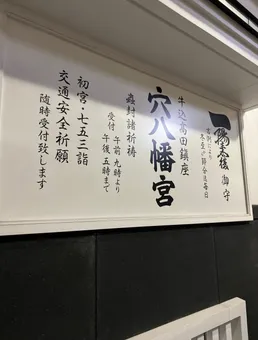 一陽来復御守
節分迄毎日
牛込高田鎮座
穴八幡宮
蟲封諸祈祷
受付
午前九時より
午後五時まで
初宮・七五三詣
交通安全祈願
随時受付致します